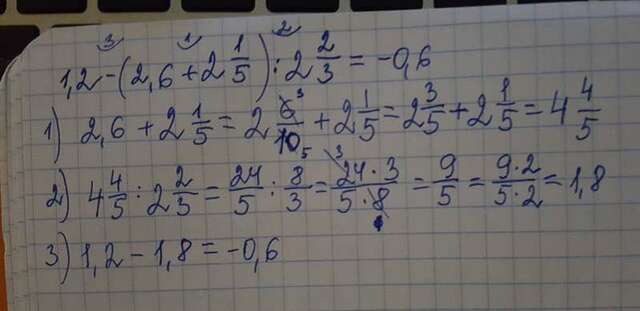 3 1 2
1,2-(2,6+2 1/5):2 2/3=-0,6
1) 2,6+2 1/5=2 6/10+2 1/5=2 3/5+2 1/5=4 4/5
2) 4 4/5:2 2/3=24/5:8/3=24·3/5·8=9/5=9·2/5·2=1,8
3) 1,2-1,8=-0,6